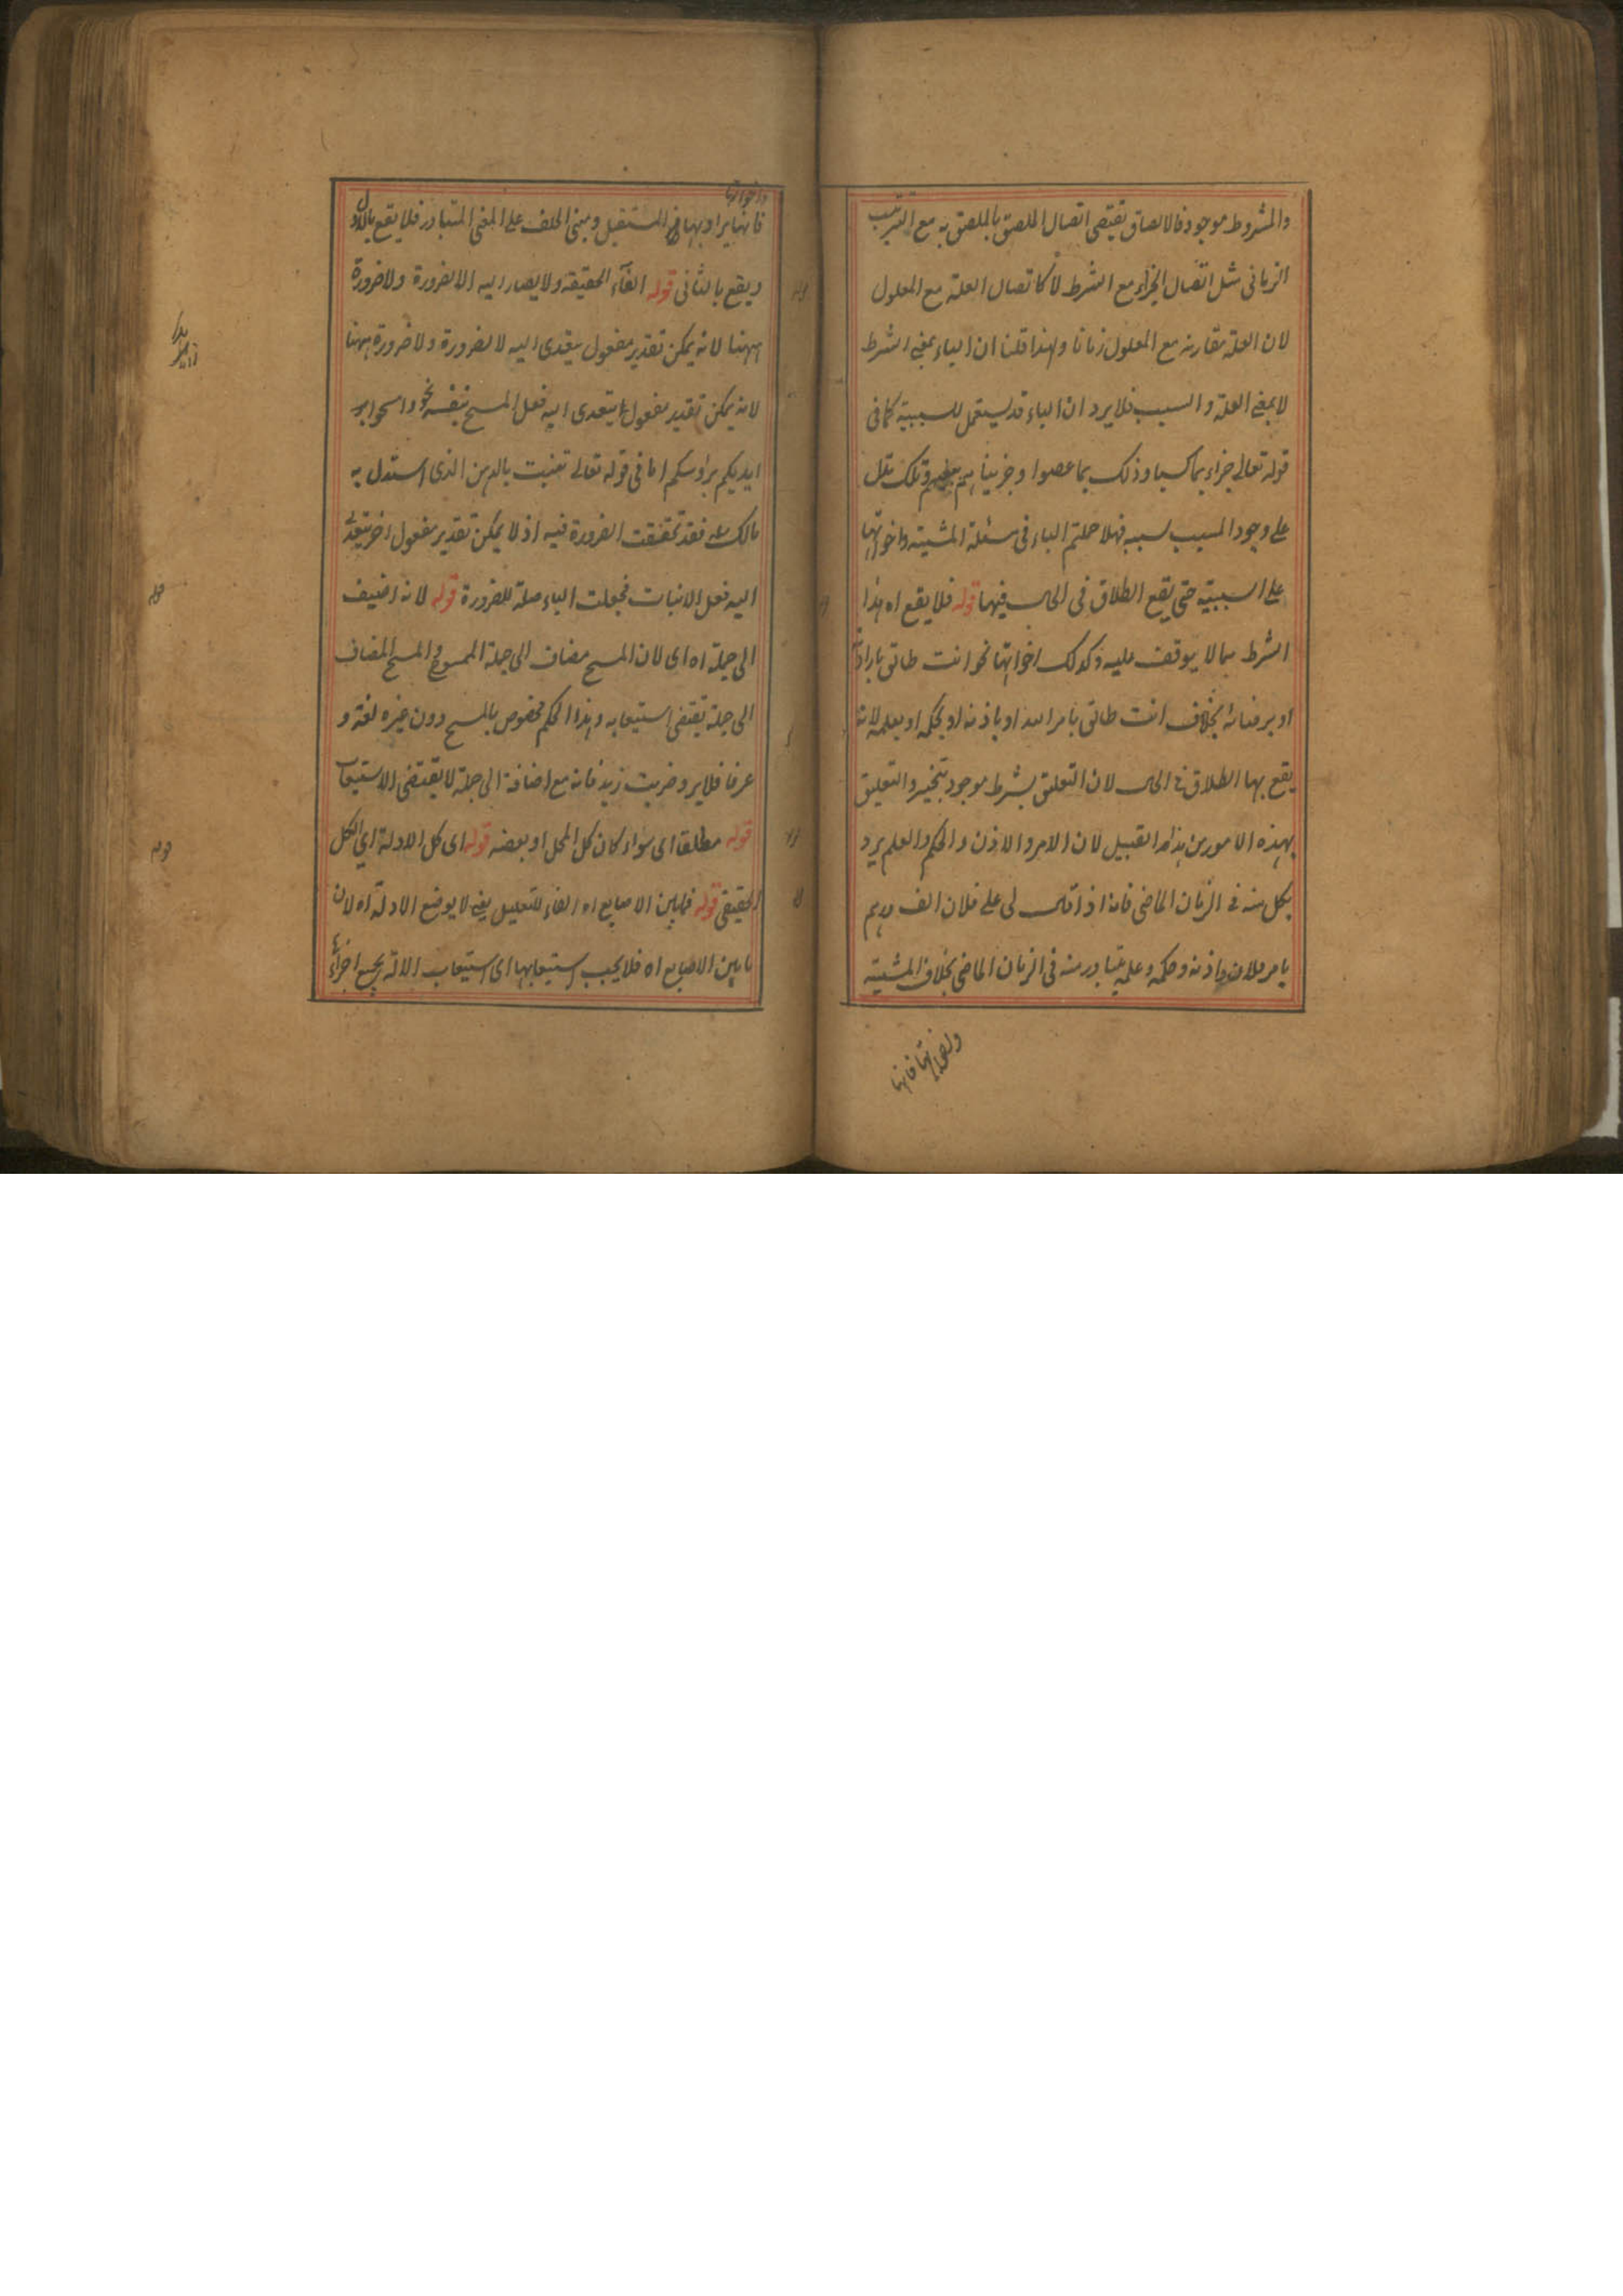 والمشروط موجود فالالصاق تقتضى اتصال الملصق بالملصق به مع الترتيب
الزمانى مثل اتصال الجزاء مع الشرط لا كاتصال العلة مع المعلول
لان العلة مقارنة مع المعلول زمانا ولهذا قلنا ان الباء بمعنى الشرط
لا بمعنى العلة والسبب فلا يرد ان الباء قد يستعمل للسببية كما فى
قوله تعالى جزاء بما كسبا وذلك بما عصوا وجزيناهم ببغيهم وتلك تدل
على وجود المسبب لسببه فهلا حملتم الباء فى مسئلة المشية واخواتها
على السببية حتى يقع الطلاق فى الحال فيها قوله فلا يقع اه هذا
الشرط مما لا يوقف عليه وكذلك اخواتها نحو انت طالق بارادته
او برضائه بخلاف انت طالق بامر الله او باذنه او بحكمه او بعلمه لانه
يقع بها الطلاق فى الحال لان التعليق بشرط موجود تنجيز والتعليق
بهذه الامور من هذا القبيل لان الامر والاذن والحكم والعلم يرد
بكل منه فى الزمان الماضى فانه اذا قال لى على فلان الف درهم
بامر فلان واذنه وحكمه وعلمه يتبادر منه فى الزمان الماضى بخلاف المشية
واخواتها فانها
واخواتها
فانها يراد بها فى المستقبل ومبنى الحلف على المعنى المتبادر فلا يقع بالاول
ويقع بالثانى قوله الغاء الحقيقة ولا يصار اليه الا لضرورة ولا ضرورة
ههنا لانه يمكن تقدير مفعول يتعدى اليه لا لضرورة ولا ضرورة ههنا
لانه يمكن تقدير مفعول يتعدى اليه فعل المسح بنفسه نحو وامسحوا
ايديكم برؤسكم اما فى قوله تعالى تنبت بالدهن الذى استدل به
مالك فقد تحققت الضرورة فيه اذ لا يمكن تقدير مفعول اخر يتعدى
اليه فعل الانبات فجعلت الباء صلة للضرورة قوله لانه اضيف
الى جملة اه اى لان المسح مضاف الى جملة الممسوح والمسح المضاف
الى جملة يقتضى استيعابه وهذا الحكم مخصوص بالمسح دون غيره لغة و
عرفا فلا يرد ضربت زيد فانه مع اضافة الى جملة لا يقتضى الاستيعاب
قوله مطلقا اى سواء كان كل المحل او بعضه قوله اى كل الادلة اى الكل
الحقيقى قوله فما بين الاصابع اه الفاء للتعليل يعنى لا يوضع الادلة اه لان
ما بين الاصابع اه فلا يجب استيعابها اى استيعاب الالة بجميع اجزائه